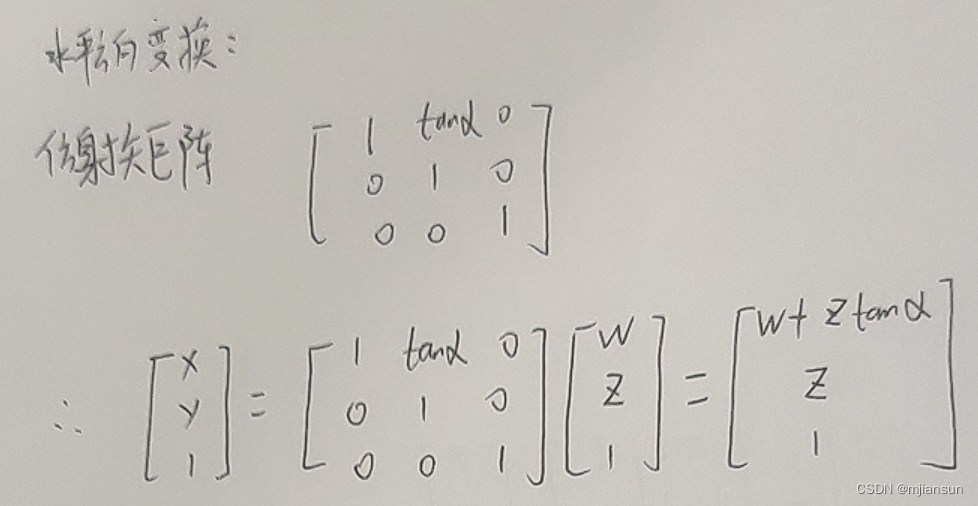 水平向变换:
仿射矩阵
[ 1 tanα 0
0 1 0
0 0 1 ]
∴ [ x y 1 ] = [ 1 tanα 0 0 1 0 0 0 1 ] [ w z 1 ] = [ w+ z tanα z 1 ]
CSDN @mjiansun